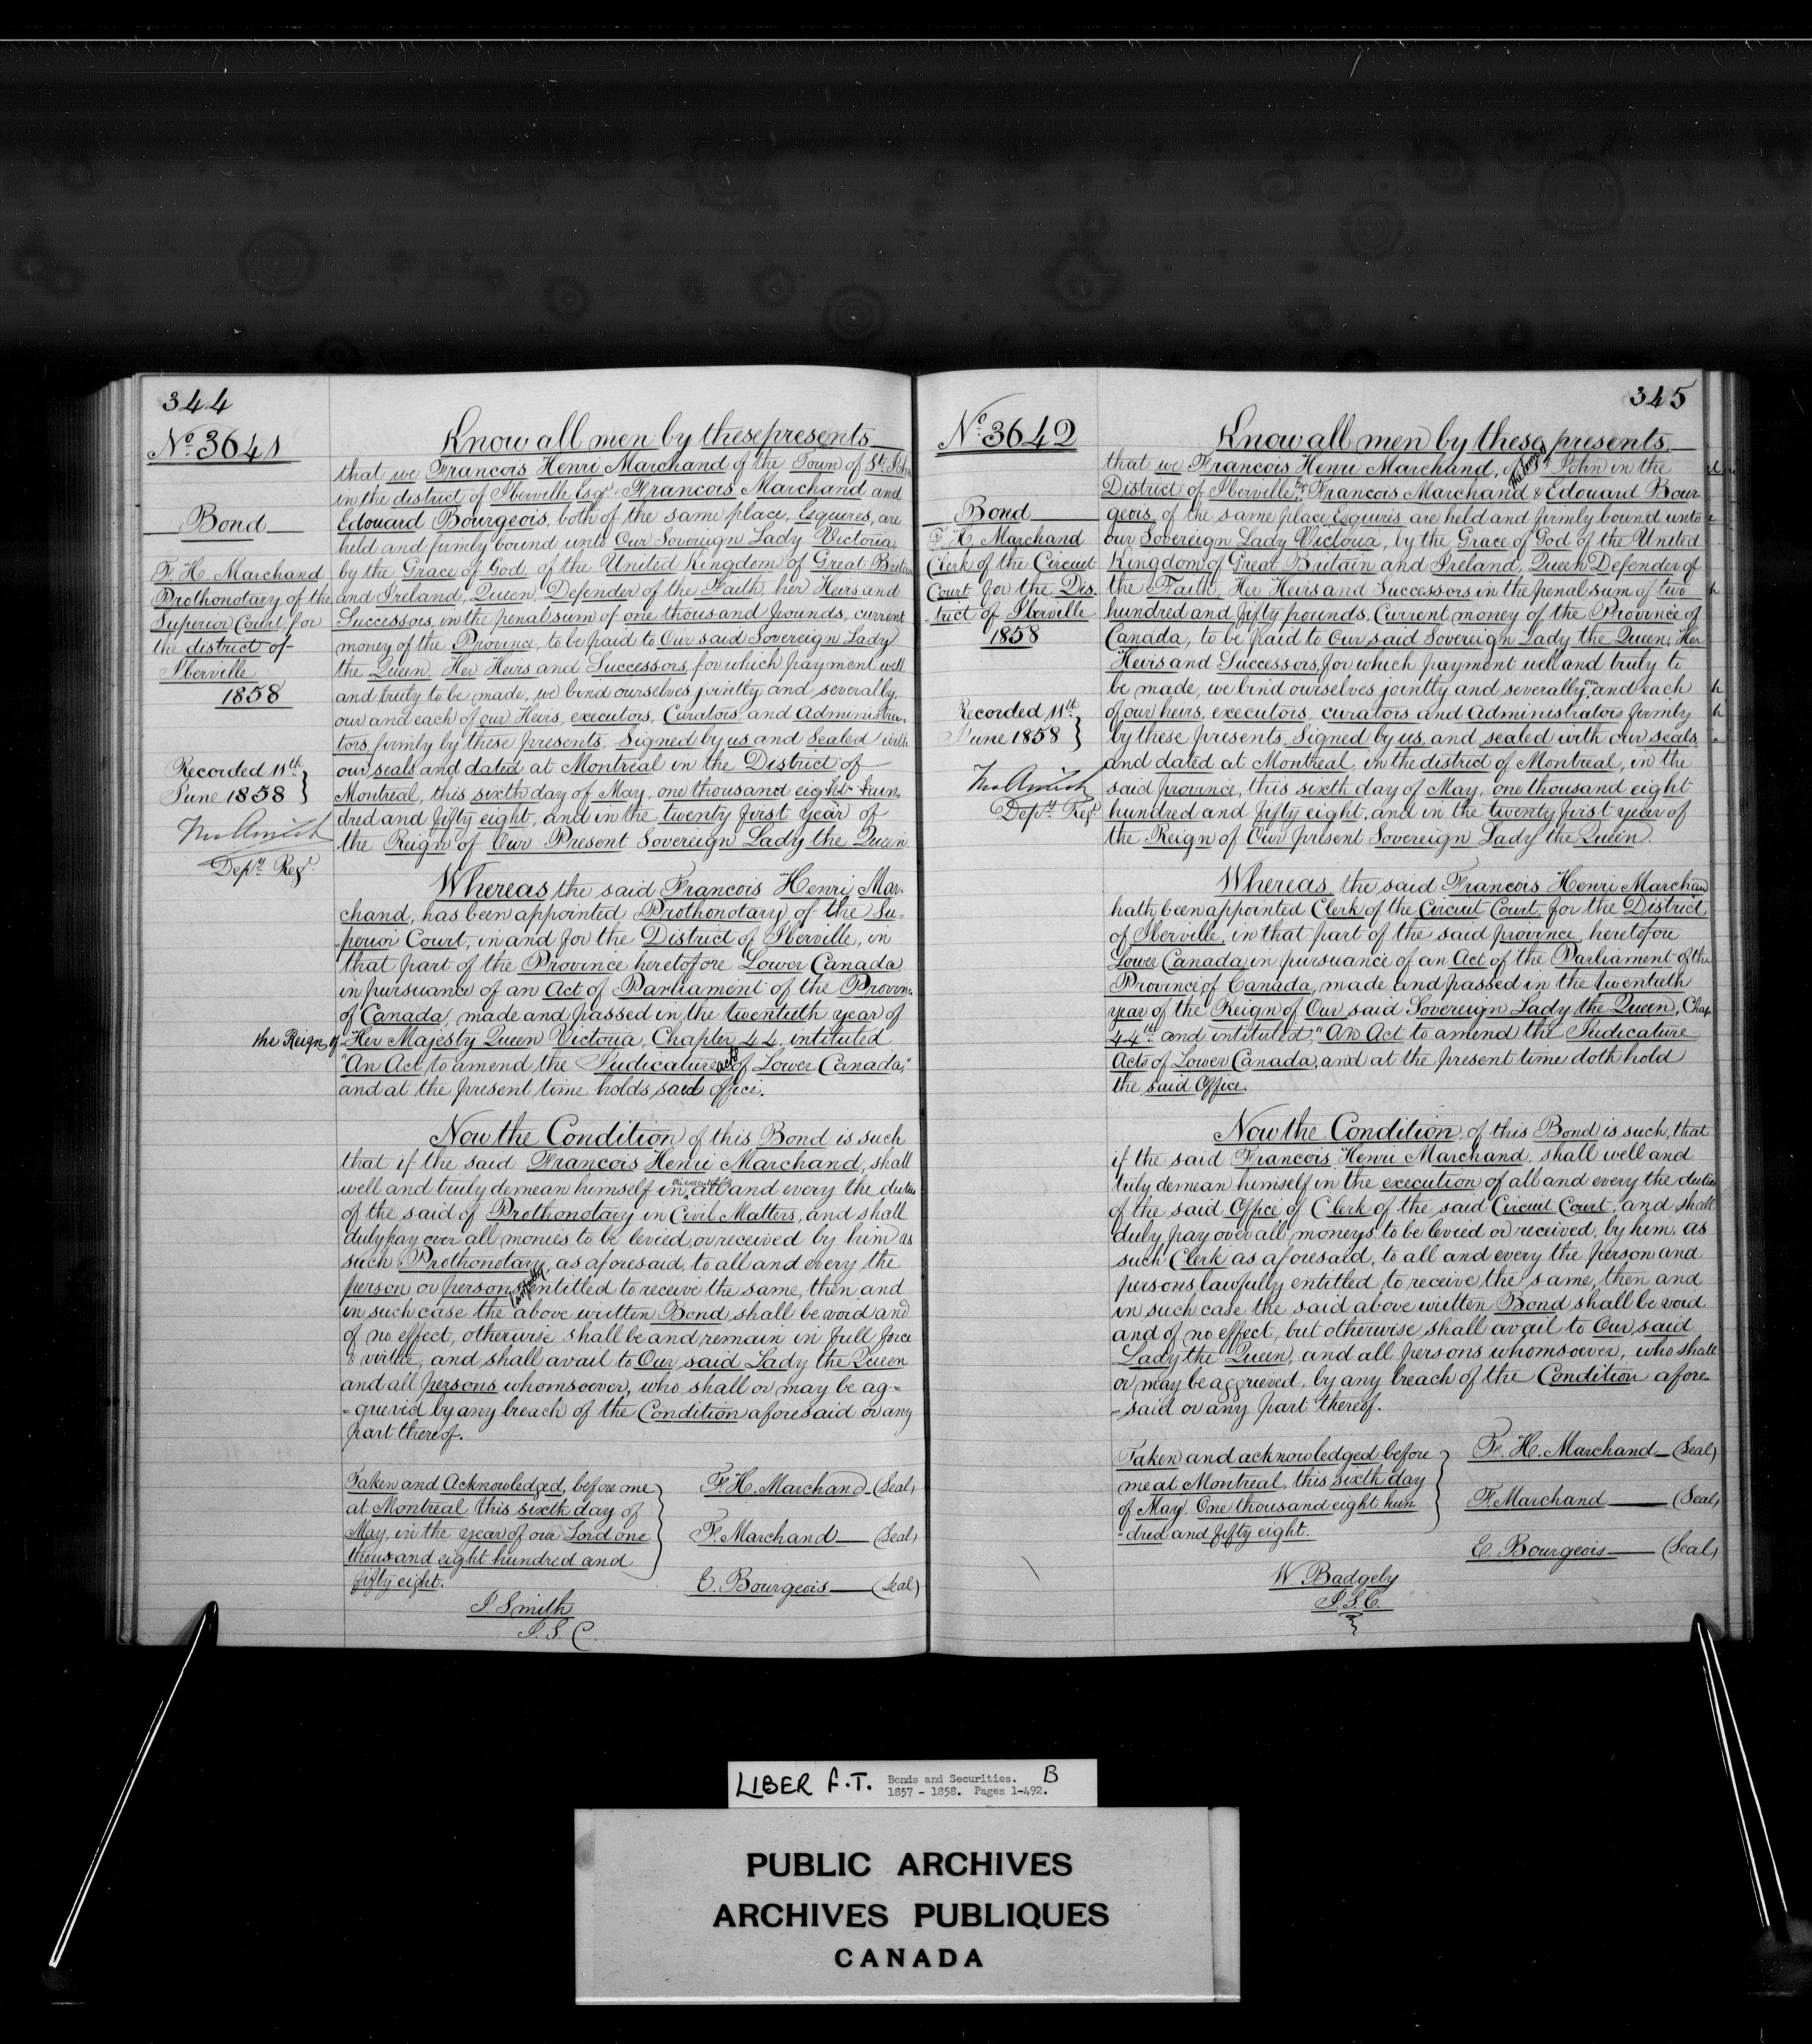 344
No. 3641
Bond
F. H. Marchand
Prothonotary of the
Superior Court for
the district of
Iberville
1858
Recorded 11th
June 1858
Depy Regr
Know all men by these presents
that we Francois Henri Marchand of the Town of St. John
in the district of Iberville Esqr. Francois Marchand and
Edouard Bourgeois, both of the same place, Esquires, are
held and firmly bound unto Our Sovereign Lady Victoria,
by the Grace of God, of the United Kingdom of Great Britain
and Ireland, Queen, Defender of the Faith, her Heirs and
Successors, in the penal sum of one thousand pounds, current
money of the Province, to be paid to Our said Sovereign Lady
the Queen, Her Heirs and Successors, for which payment well
and truly to be made, we bind ourselves jointly and severally,
our and each of our Heirs, executors, Curators, and Administra-
tors, firmly by these presents, Signed by us and Sealed with
our seals and dated at Montreal in the District of
Montreal, this sixth day of May, one thousand eight hun-
dred and fifty eight, and in the twenty first year of
the Reign of Our Present Sovereign Lady the Queen
Whereas the said Francois Henri Mar-
chand, has been appointed Prothonotary of the Su-
perior Court, in and for the District of Iberville, in
that part of the Province heretofore Lower Canada
in pursuance of an Act of Parliament of the Province
of Canada, made and passed in the twentieth year of
the Reign of Her Majesty Queen Victoria, Chapter 44, intituled
"An Act to amend the Judicature acts of Lower Canada,"
and at the present time holds said office.
Now the Condition of this Bond is such
that if the said Francois Henri Marchand, shall
well and truly demean himself in the execution of all and every the duties
of the said of Prothonotary in Civil Matters, and shall
duly pay over all monies to be levied, or received by him as
such Prothonotary, as aforesaid, to all and every the
person or persons lawfully entitled to receive the same, then and
in such case the above written Bond shall be void and
of no effect, otherwise shall be and remain in full force
& virtue, and shall avail to Our said Lady the Queen
and all persons whomsoever, who shall or may be ag-
-grieved by any breach of the Condition aforesaid or any
part thereof.
Taken and Acknowledged, before me
at Montreal this sixth day of
May, in the year of our Lord one
thousand eight hundred and
fifty eight.
F. H. Marchand (Seal)
F. Marchand (Seal)
E. Bourgeois (Seal)
J Smith
J. S. C.
345
No. 3642
Bond
F. H. Marchand
Clerk of the Circuit
Court for the Dis-
-trict of Iberville
1858
Recorded 11th
June 1858
Depy Regr
Know all men by these presents
that we Francois Henri Marchand, of the town of St John in the
District of Iberville Esqr Francois Marchand & Edouard Bour-
geois, of the same place Esquires are held and firmly bound unto
our Sovereign Lady Victoria, by the Grace of God of the United
Kingdom of Great Britain and Ireland, Queen Defender of
the Faith, Her Heirs and Successors in the penal sum of two
hundred and fifty pounds, Current money of the Province of
Canada, to be paid to Our said Sovereign Lady the Queen, Her
Heirs and Successors, for which payment well and truly to
be made, we bind ourselves jointly and severally, our and each
of our heirs, executors, curators and Administrators firmly
by these presents, Signed by us, and sealed with our seals
and dated at Montreal, in the district of Montreal, in the
said province, this sixth day of May, one thousand eight
hundred and fifty eight, and in the twenty first year of
the Reign of Our present Sovereign Lady the Queen.
Whereas, the said Francois Henri Marchand
hath been appointed Clerk of the Circuit Court, for the District
of Iberville, in that part of the said province, heretofore
Lower Canada, in pursuance of an Act of the Parliament of the
Province of Canada, made and passed in the twentieth
year of the Reign of Our said Sovereign Lady the Queen, Chap
44th and intituled, "An Act to amend the Judicature
Acts of Lower Canada, and at the present time doth hold
the said Office.
Now the Condition, of this Bond is such, that
if the said Francois Henri Marchand, shall well and
truly demean himself in the execution of all and every the duties
of the said Office of Clerk of the said Circuit Court, and shall
duly pay over all moneys to be levied or received, by him, as
such Clerk as aforesaid, to all and every the person and
persons lawfully entitled to receive the same, then and
in such case the said above written Bond shall be void
and of no effect, but otherwise shall avail to Our said
Lady the Queen, and all persons whomsoever, who shall
or may be aggrieved, by any breach of the Condition afore-
-said or any part thereof.
Taken and acknowledged before
me at Montreal, this sixth day
of May. One thousand eight hun
-dred and fifty eight.
F. H. Marchand (Seal)
F. Marchand (Seal)
E. Bourgeois (Seal)
W. Badgely
J. S. C.
LIBER F.T. Bonds and Securities. B
1857 - 1858. Pages 1-492.
PUBLIC ARCHIVES
ARCHIVES PUBLIQUES
CANADA